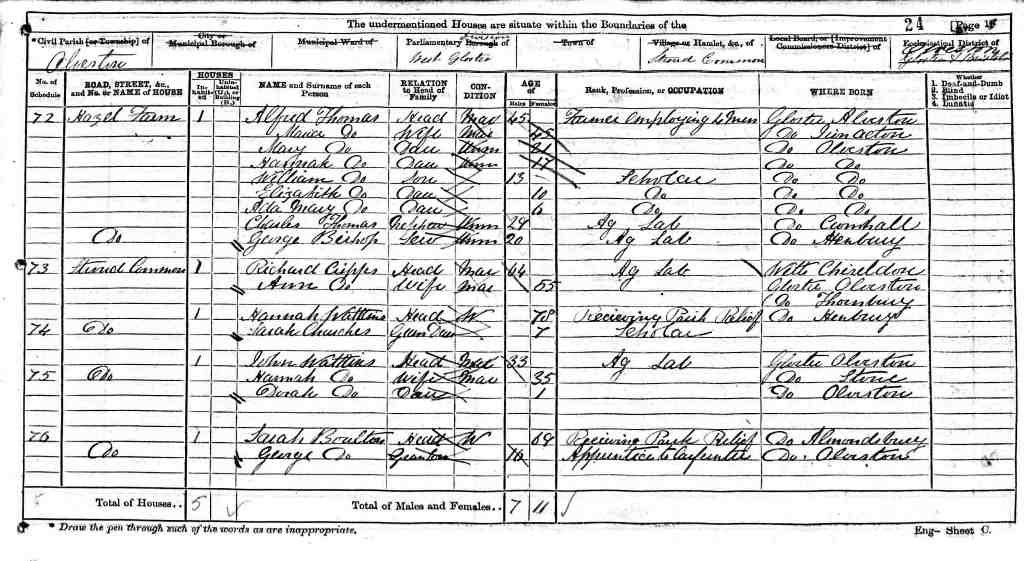 The undermentioned Houses are situate within the Boundaries of the
24 [Page 15
*Civil Parish [or Township] of
City or Municipal Borough of
Municipal Ward of
Parliamentary Borough of
Town of
Village or Hamlet, &c., of
Local Board, or [Improvement Commissioners District] of
Ecclesiastical District of
Olveston West Gloster Common
No. of Schedule
ROAD, STREET, &c., and No. or NAME of HOUSE
HOUSES
Inhabited
Uninhabited (U.), or Building (B.)
NAME and Surname of each Person
RELATION to Head of Family
CONDITION
AGE
Males Females
Rank, Profession, or OCCUPATION
WHERE BORN
Whether
1. Deaf-and-Dumb
2. Blind
3. Imbecile or Idiot
4. Lunatic
72 Hazel Farm 1 Alfred Thomas Head Mar 45 Farmer employing 4 men Gloster Alveston
Maria Do Wife Mar 45 Do
Mary Do Dau Unm 21 Do Olveston
Hannah Do Dau Unm 17 Do Do
William Do Son 13 Scholar Do Do
Elizabeth Do Dau 10 Do Do Do
Ada Mary Do Dau 6 Do Do Do
Charles Thomas Nephew Unm 29 Ag Lab Do Cromhall
Do George Bishop Ser Unm 20 Ag Lab Do Henbury
73 Common 1 Richard Cripps Head Mar 64 Ag Lab Wilts Chiseldon
Ann Do Wife Mar 55 Gloster Olveston
Do Thornbury
1 Hannah Watkins Head W 78 Recieving Parish Relief Do Henbury
74 Do Sarah Churches Gran Dau 7 Scholar
1 John Watkins Head Mar 33 Ag Lab Gloster Olveston
75 Do Hannah Do Wife Mar 35 Do Stone
Do Dau 1 Do Olveston
76 1 Sarah Boulton Head W 68 Receiving Parish Relief Do Almondsbury
Do George Do Grandson 16 Apprentice to Carpenter Do Olveston
Total of Houses.. 5
Total of Males and Females.. 7 11
* Draw the pen through such of the words as are inappropriate.
Eng- Sheet C.